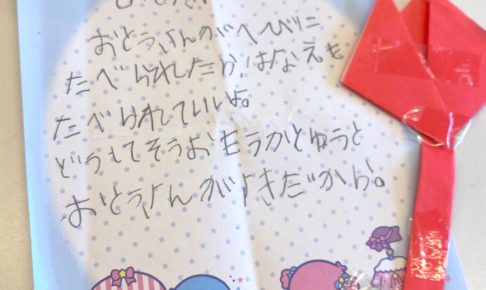 おとうさんがへびに
たべられたから、はなえも
たべられていいよ。
どうしてそうおもうかとゆうと
おとうさんがすきだから。